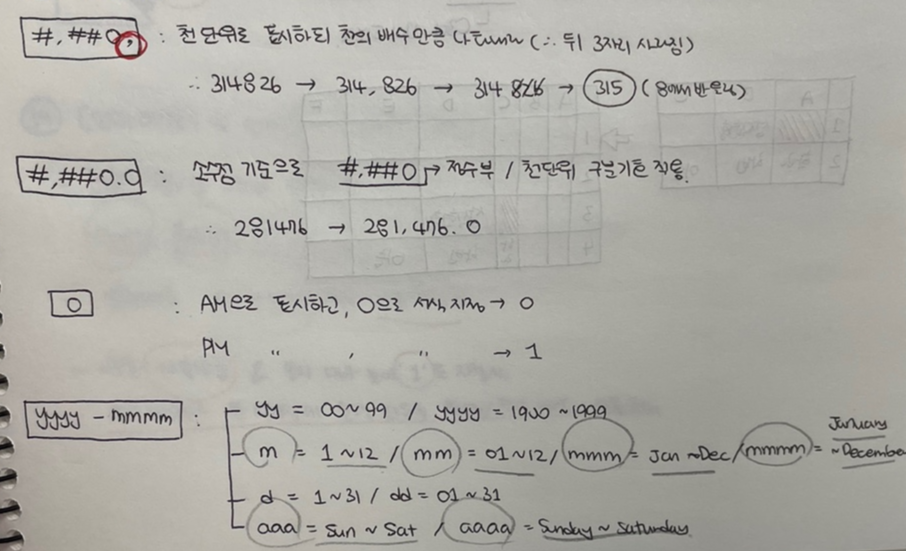 #,##0, : 천단위로 표시하되 천의 배수만큼 나타내라 (∴ 뒤 3자리 사라짐)
∴ 314826 → 314,826 → 314 826 → 315 (8에서 반올림)
#,##0.0 : 소수점 기준으로 #,##0 → 정수부 / 천단위 구분기호 적용.
∴ 281476 → 281,476.0
0 : AM으로 표시하고, 0으로 서식지정 → 0
PM " , " → 1
yyyy - mmmm : yy = 00~99 / yyyy = 1900~1999
m = 1~12 / mm = 01~12 / mmm = Jan ~Dec / mmmm = January ~December
d = 1~31 / dd = 01~31
aaa = Sun ~ Sat / aaaa = Sunday ~ Saturday